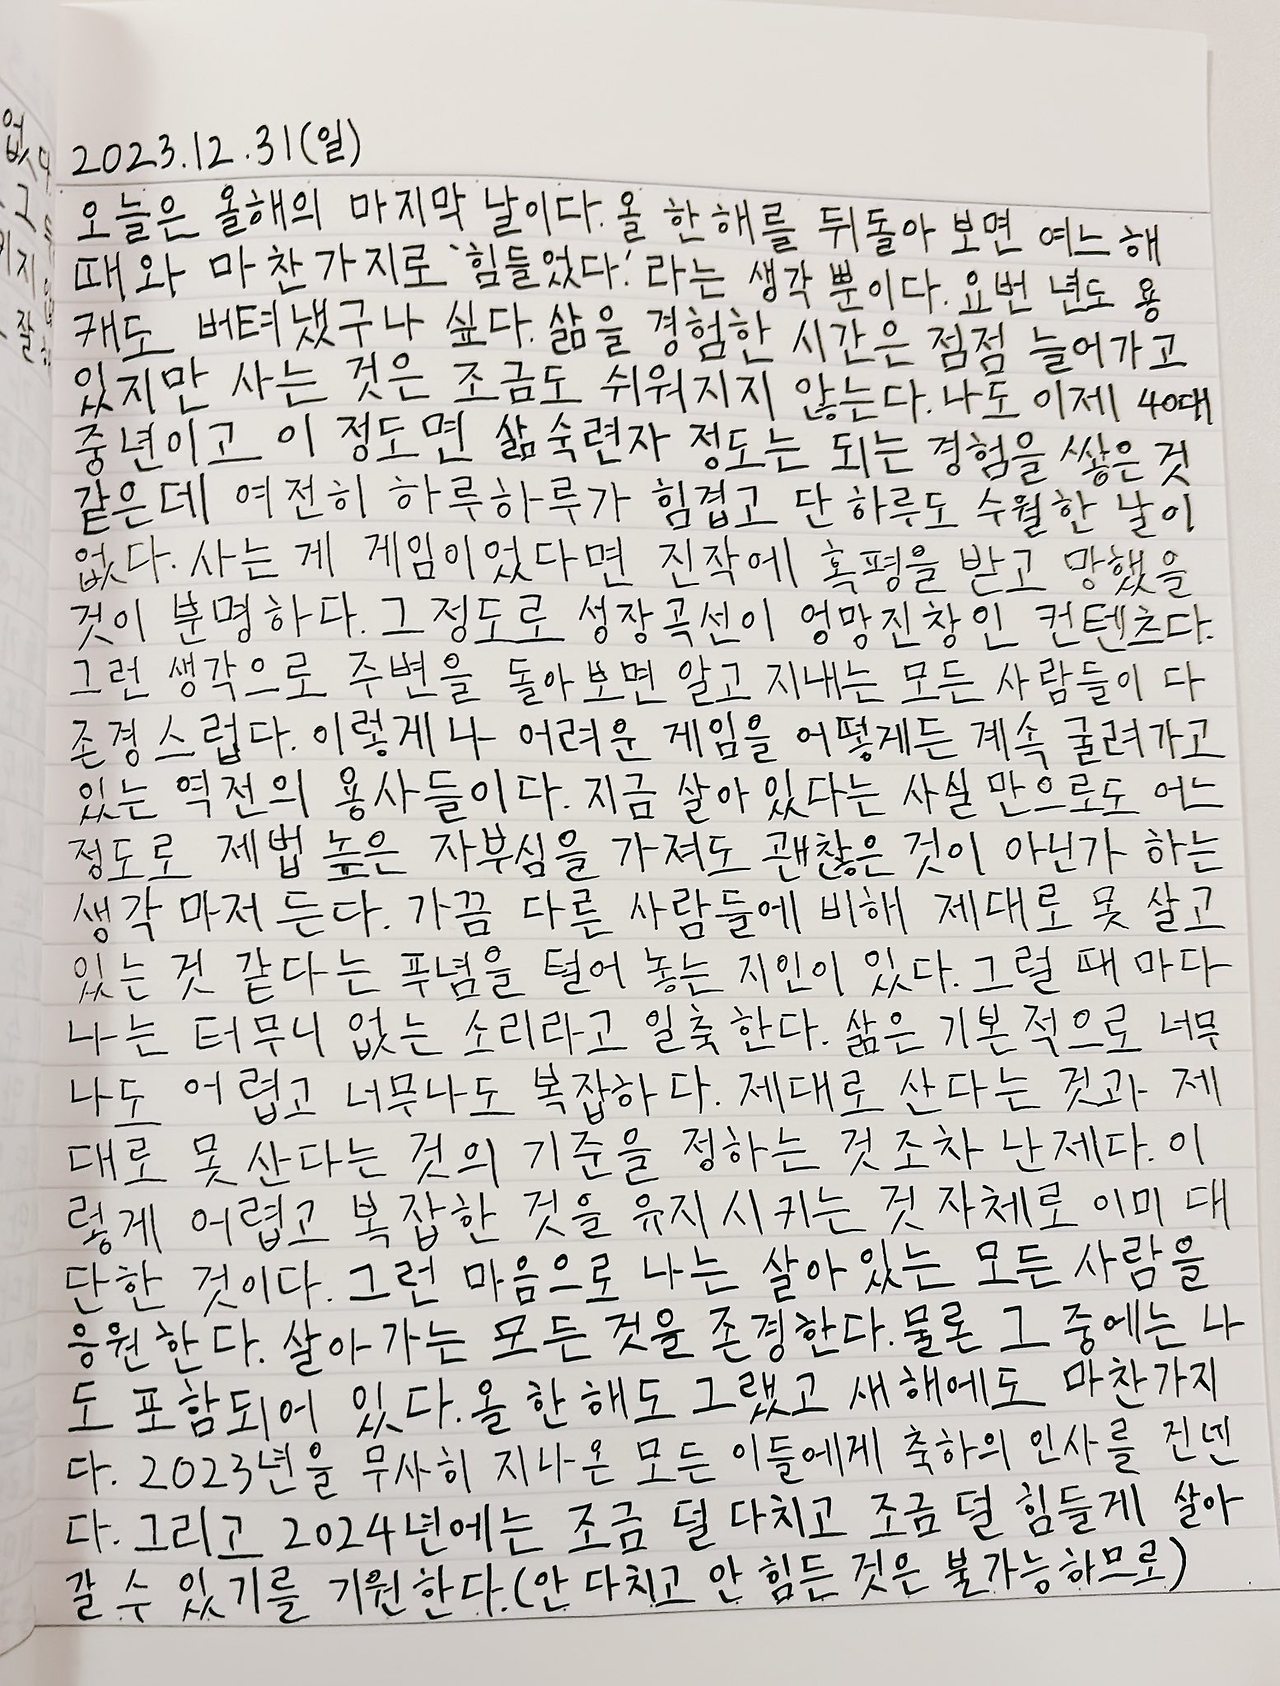 2023.12.31(일)
오늘은 올해의 마지막 날이다. 올 한 해를 뒤돌아 보면 여느 해
때와 마찬가지로 '힘들었다.' 라는 생각 뿐이다. 요번 년도 용
캐도 버텨냈구나 싶다. 삶을 경험한 시간은 점점 늘어가고
있지만 사는 것은 조금도 쉬워지지 않는다. 나도 이제 40대
중년이고 이 정도면 삶 숙련자 정도는 되는 경험을 쌓은 것
같은데 여전히 하루하루가 힘겹고 단 하루도 수월한 날이
없다. 사는 게 게임이었다면 진작에 혹평을 받고 망했을
것이 분명하다. 그 정도로 성장곡선이 엉망진창인 컨텐츠다.
그런 생각으로 주변을 돌아보면 알고 지내는 모든 사람들이 다
존경스럽다. 이렇게나 어려운 게임을 어떻게든 계속 굴려가고
있는 역전의 용사들이다. 지금 살아있다는 사실 만으로도 어느
정도로 제법 높은 자부심을 가져도 괜찮은 것이 아닌가 하는
생각 마저 든다. 가끔 다른 사람들에 비해 제대로 못 살고
있는 것 같다는 푸념을 털어 놓는 지인이 있다. 그럴 때 마다
나는 터무니 없는 소리라고 일축한다. 삶은 기본적으로 너무
나도 어렵고 너무나도 복잡하다. 제대로 산다는 것과 제
대로 못 산다는 것의 기준을 정하는 것 조차 난제다. 이
렇게 어렵고 복잡한 것을 유지시키는 것 자체로 이미 대
단한 것이다. 그런 마음으로 나는 살아있는 모든 사람을
응원한다. 살아가는 모든 것을 존경한다. 물론 그 중에는 나
도 포함되어 있다. 올 한 해도 그랬고 새해에도 마찬가지
다. 2023년을 무사히 지나온 모든 이들에게 축하의 인사를 건넨
다. 그리고 2024년에는 조금 덜 다치고 조금 덜 힘들게 살아
갈 수 있기를 기원한다. (안 다치고 안 힘든 것은 불가능하므로)